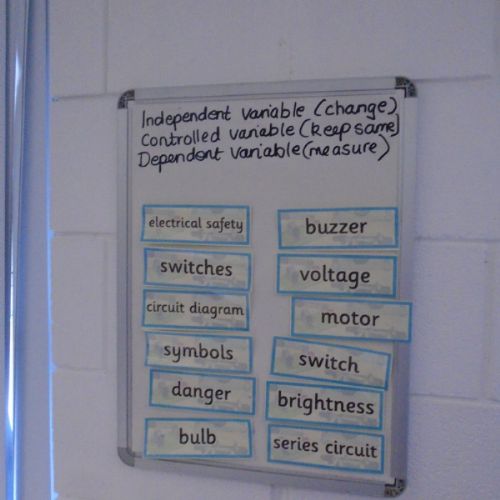 Independent variable (change)
Controlled variable (keep same)
Dependent variable (measure)
electrical safety
switches
circuit diagram
symbols
danger
bulb
buzzer
voltage
motor
switch
brightness
series circuit